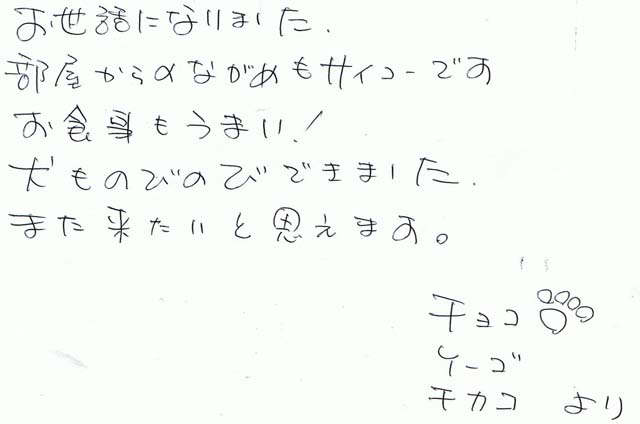 お世話になりました.
部屋からのながめもサイコーです
お食事もうまい!
犬ものびのびできました.
また来たいと思えます。
チョコ
イーゴ
チカコ より